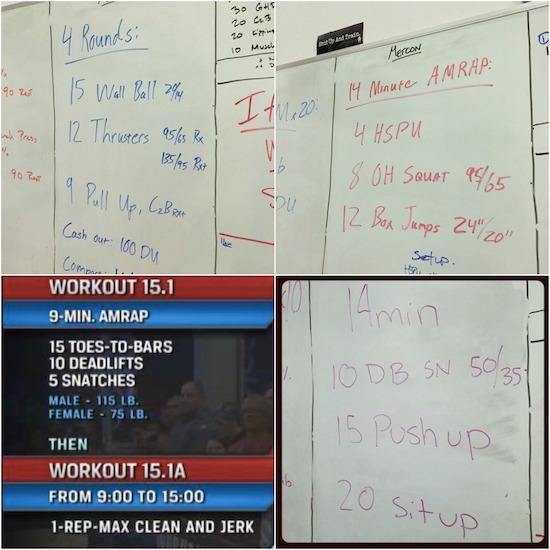 4 Rounds:
15 Wall Ball 20/14
12 Thrusters 95/65 Rx
135/95 Rx+
9 Pull Up, C2B Rx+
Cash out: 100 DU
90 Rest
90 Rest
30 GHS
20 C2B
10
Shut Up And Train.
METCON
14 Minute AMRAP:
4 HSPU
8 OH SQUAT 95/65
12 Box Jumps 24"/20"
Setup.
x20:
DU
WORKOUT 15.1
9-MIN. AMRAP
15 TOES-TO-BARS
10 DEADLIFTS
5 SNATCHES
MALE - 115 LB.
FEMALE - 75 LB.
THEN
WORKOUT 15.1A
FROM 9:00 TO 15:00
1-REP-MAX CLEAN AND JERK
14min
10 DB SN 50/35
15 Push up
20 situp